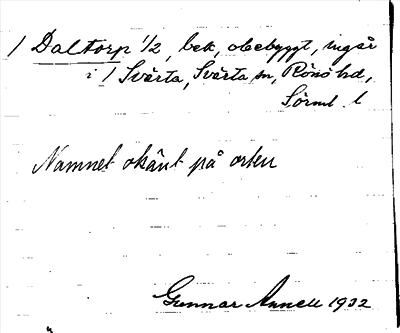 / Daltorp 1/2, bek, obebyggt, ingår
i / Svärta, Svärta sn, Rönö hd,
Sörml. l
Namnet okänt på orten
Gunnar Annell 1932